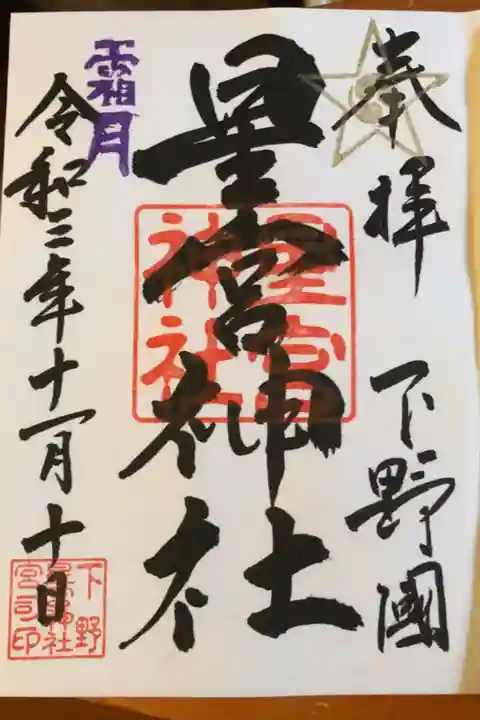 奉拝 下野國
星宮神社
星宮神社
霜月
令和三年十一月十日
下野
星宮神社
宮司印